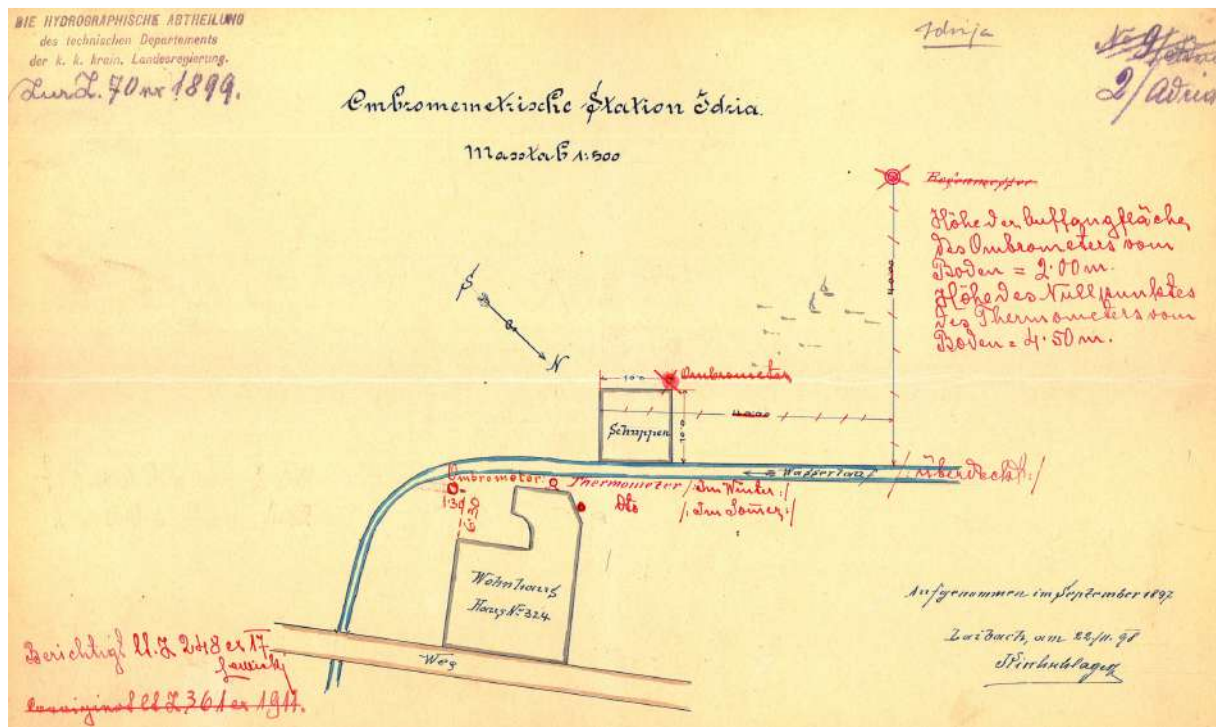 DIE HYDROGRAPHISCHE ABTHEILUNG
des technischen Departements
der k. k. krain. Landesregierung.
Zur Z. 70 ex 1899.
Idrija
No 9
2/Adria
Ombromemetrische Station Idria.
Masstab 1:500
Regenmesser
Höhe der Auffangfläche
des Ombrometers vom
Boden = 2·00 m.
Höhe des Nullpunktes
des Thermometers vom
Boden = 4·50 m.
40·00
S
N
10·0
Ombrometer
Schuppen
10·0
40·00
Wasserlauf /:überdeckt:/
Ombrometer
Thermometer /:Im Winter:/
1·30
6·30
dto /:Im Som̄er:/
Wohnhaus
Haus No 324
Weg
Aufgenommen im September 1897
Laibach, am 22/11. 98
Berichtigt lt. Z 248 ex 17
lt Z 361 ex 1917.